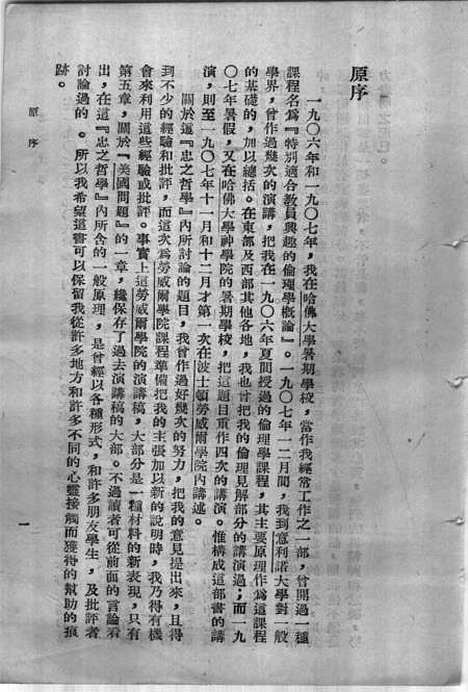 原序
一九〇六年和一九〇七年，我在哈佛大學暑期學校，當作我經常工作之一部，曾開過一種
課程名爲『特別適合教員興趣的倫理學概論』。一九〇七年一二月間，我到意利諾大學對一般
學界，曾作過幾次的演講，把我在一九〇六年夏間授過的倫理學課程，其主要原理作爲這課程
的基礎的，加以總括。在東部及西部其他各地，我也曾把我的倫理見解部分的講演過；而一九
〇七年暑假，又在哈佛大學神學院的暑期學校，把這題目重作四次的講演。惟構成這部書的講
演，則至一九〇七年十一月和十二月才第一次在波士頓勞威爾學院內講述。
關於這『忠之哲學』內所討論的題目，我曾作過好幾次的努力，把我的意見提出來，且得
到不少的經驗和批評，而這次爲勞威爾學院課程準備把我的主張加以新的說明時，我乃得有機
會來利用這些經驗或批評。事實上這勞威爾學院的演講稿，大部分是一種材料的新表現，只有
第五章，關於『美國問題』的一章，纔保存了過去演講稿的大部。不過讀者可從前面的言論看
出，在這『忠之哲學』內所含的一般原理，是曾經以各種形式，和許多朋友學生，及批評者
討論過的。所以我希望這書可以保留我從許多地方和許多不同的心靈接觸而獲得的幫助的痕
跡。
原序
一